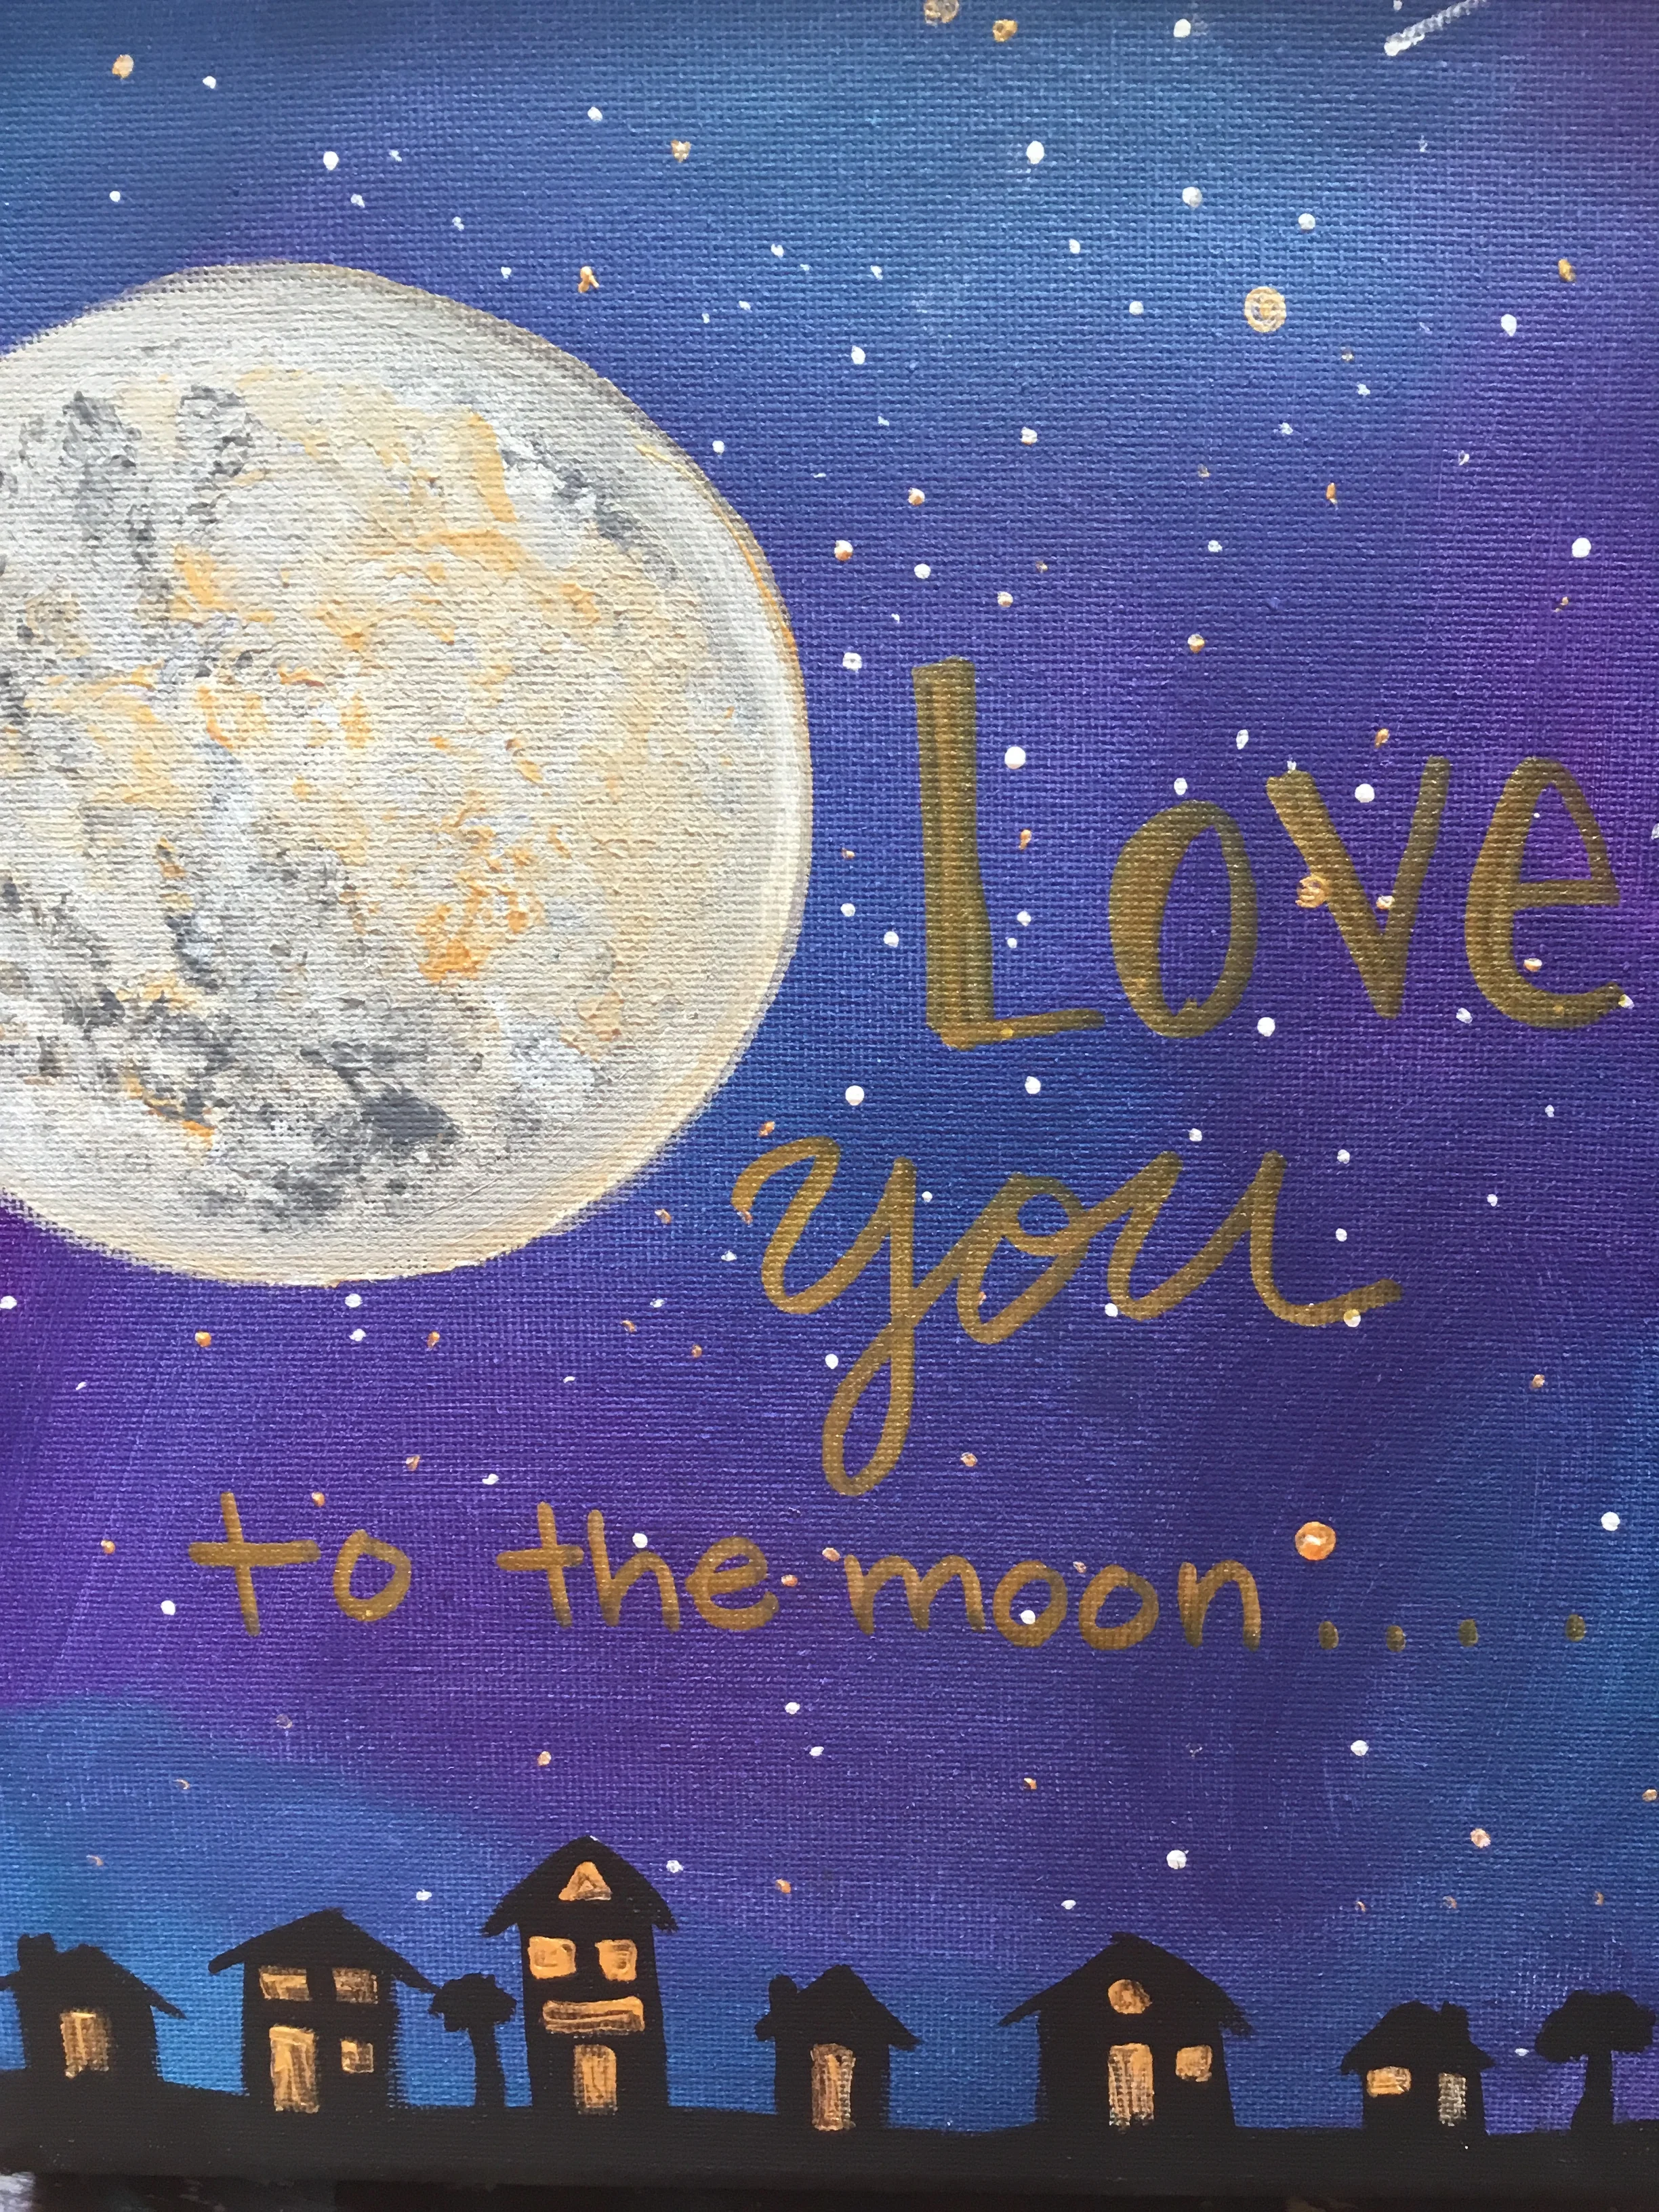 Love
you
to the moon....